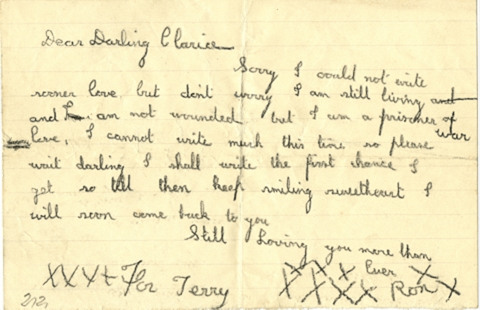 Dear Darling Clarice
Sorry I could not write
sooner love but don't worry I am still living and
and I am not wounded but I am a prisoner of
war
love, I cannot write much this time so please
wait darling I shall write the first chance I
get so till then keep smiling sweetheart I
will soon come back to you
Still Loving you more than
Ever
XXXX For Terry XXXXXXX Ron X
212